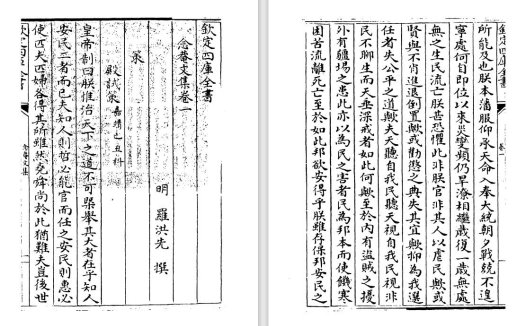 欽定四庫全書
念菴文集卷一
明 羅洪先 撰
策
殿試策 嘉靖己丑科
皇帝制曰朕惟治天下之道不可槩舉其大者在乎知人
安民二者而已夫知人則哲必能官而任之安民則惠必
使匹夫匹婦各得其所雖然堯舜尚於此猶難夫豈後世
欽定四庫全書
所能及也朕本藩服仰承天命入奉大統朝夕戰兢不遑
寧處何自即位以來災變頻仍旱潦相繼歲復一歲無處
無之生民流亡朕甚恐懼此非朕官非其人以虐民歟或
賢與不肖進退倒置歟或勸懲之典失其宜歟抑為我選
任者失公平之道歟夫天聽自我民聽天視自我民視非
民不聊生而天垂深戒者如此何歟至於内有盜賊之擾
外有疆埸之患此亦以為民之害者民為邦本而使饑寒
困苦流離死亡至於如此邦欲安得乎朕雖存保邦安民之